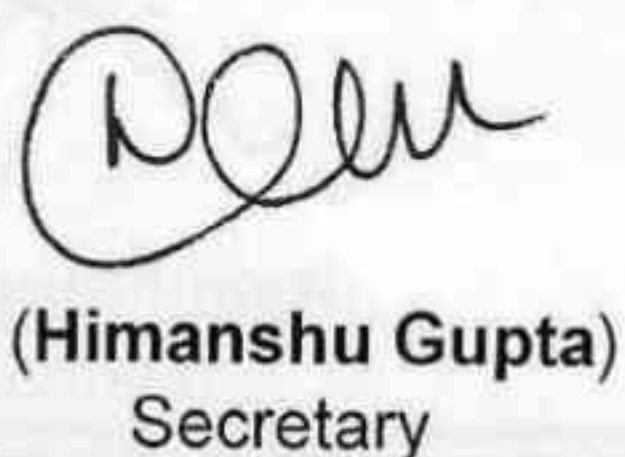 (Himanshu Gupta)
Secretary